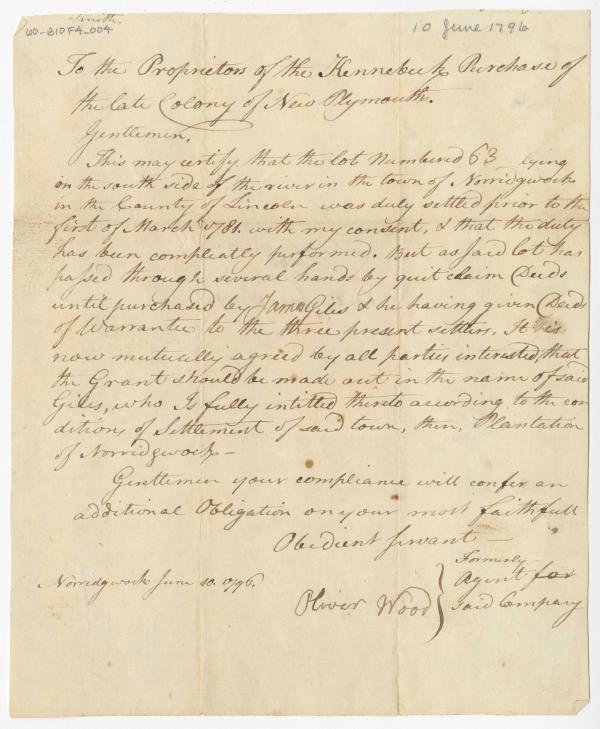 Smith.
60-BIOF4-004
10 June 1796
To the Proprietors of the Kennebeck Purchase of
the late Colony of New Plymouth.
Gentlemen,
This may certify that the lot Numbered 63 lying
on the south side of the river in the town of Norridgwock
in the County of Lincoln was duly settled prior to the
first of March 1781. with my consent, & that the duty
has been compleatly performed. But as said lot has
passed through several hands by quit claim Deeds
until purchased by James Giles & he having given Deeds
of Warrantee to the three present settlers. It is
now mutually agreed by all parties interested, that
the Grant should be made out in the name of said
Giles, who Is fully intitled thereto according to the con
ditions of Settlement of said town, then, Plantation
of Norridgwock—
Gentlemen your compliance will confer an
additional Obligation on your most faithfull
Obedient servant—
Norridgwock June 10. 1796.
Oliver Wood
Formerly
Agent for
said Company